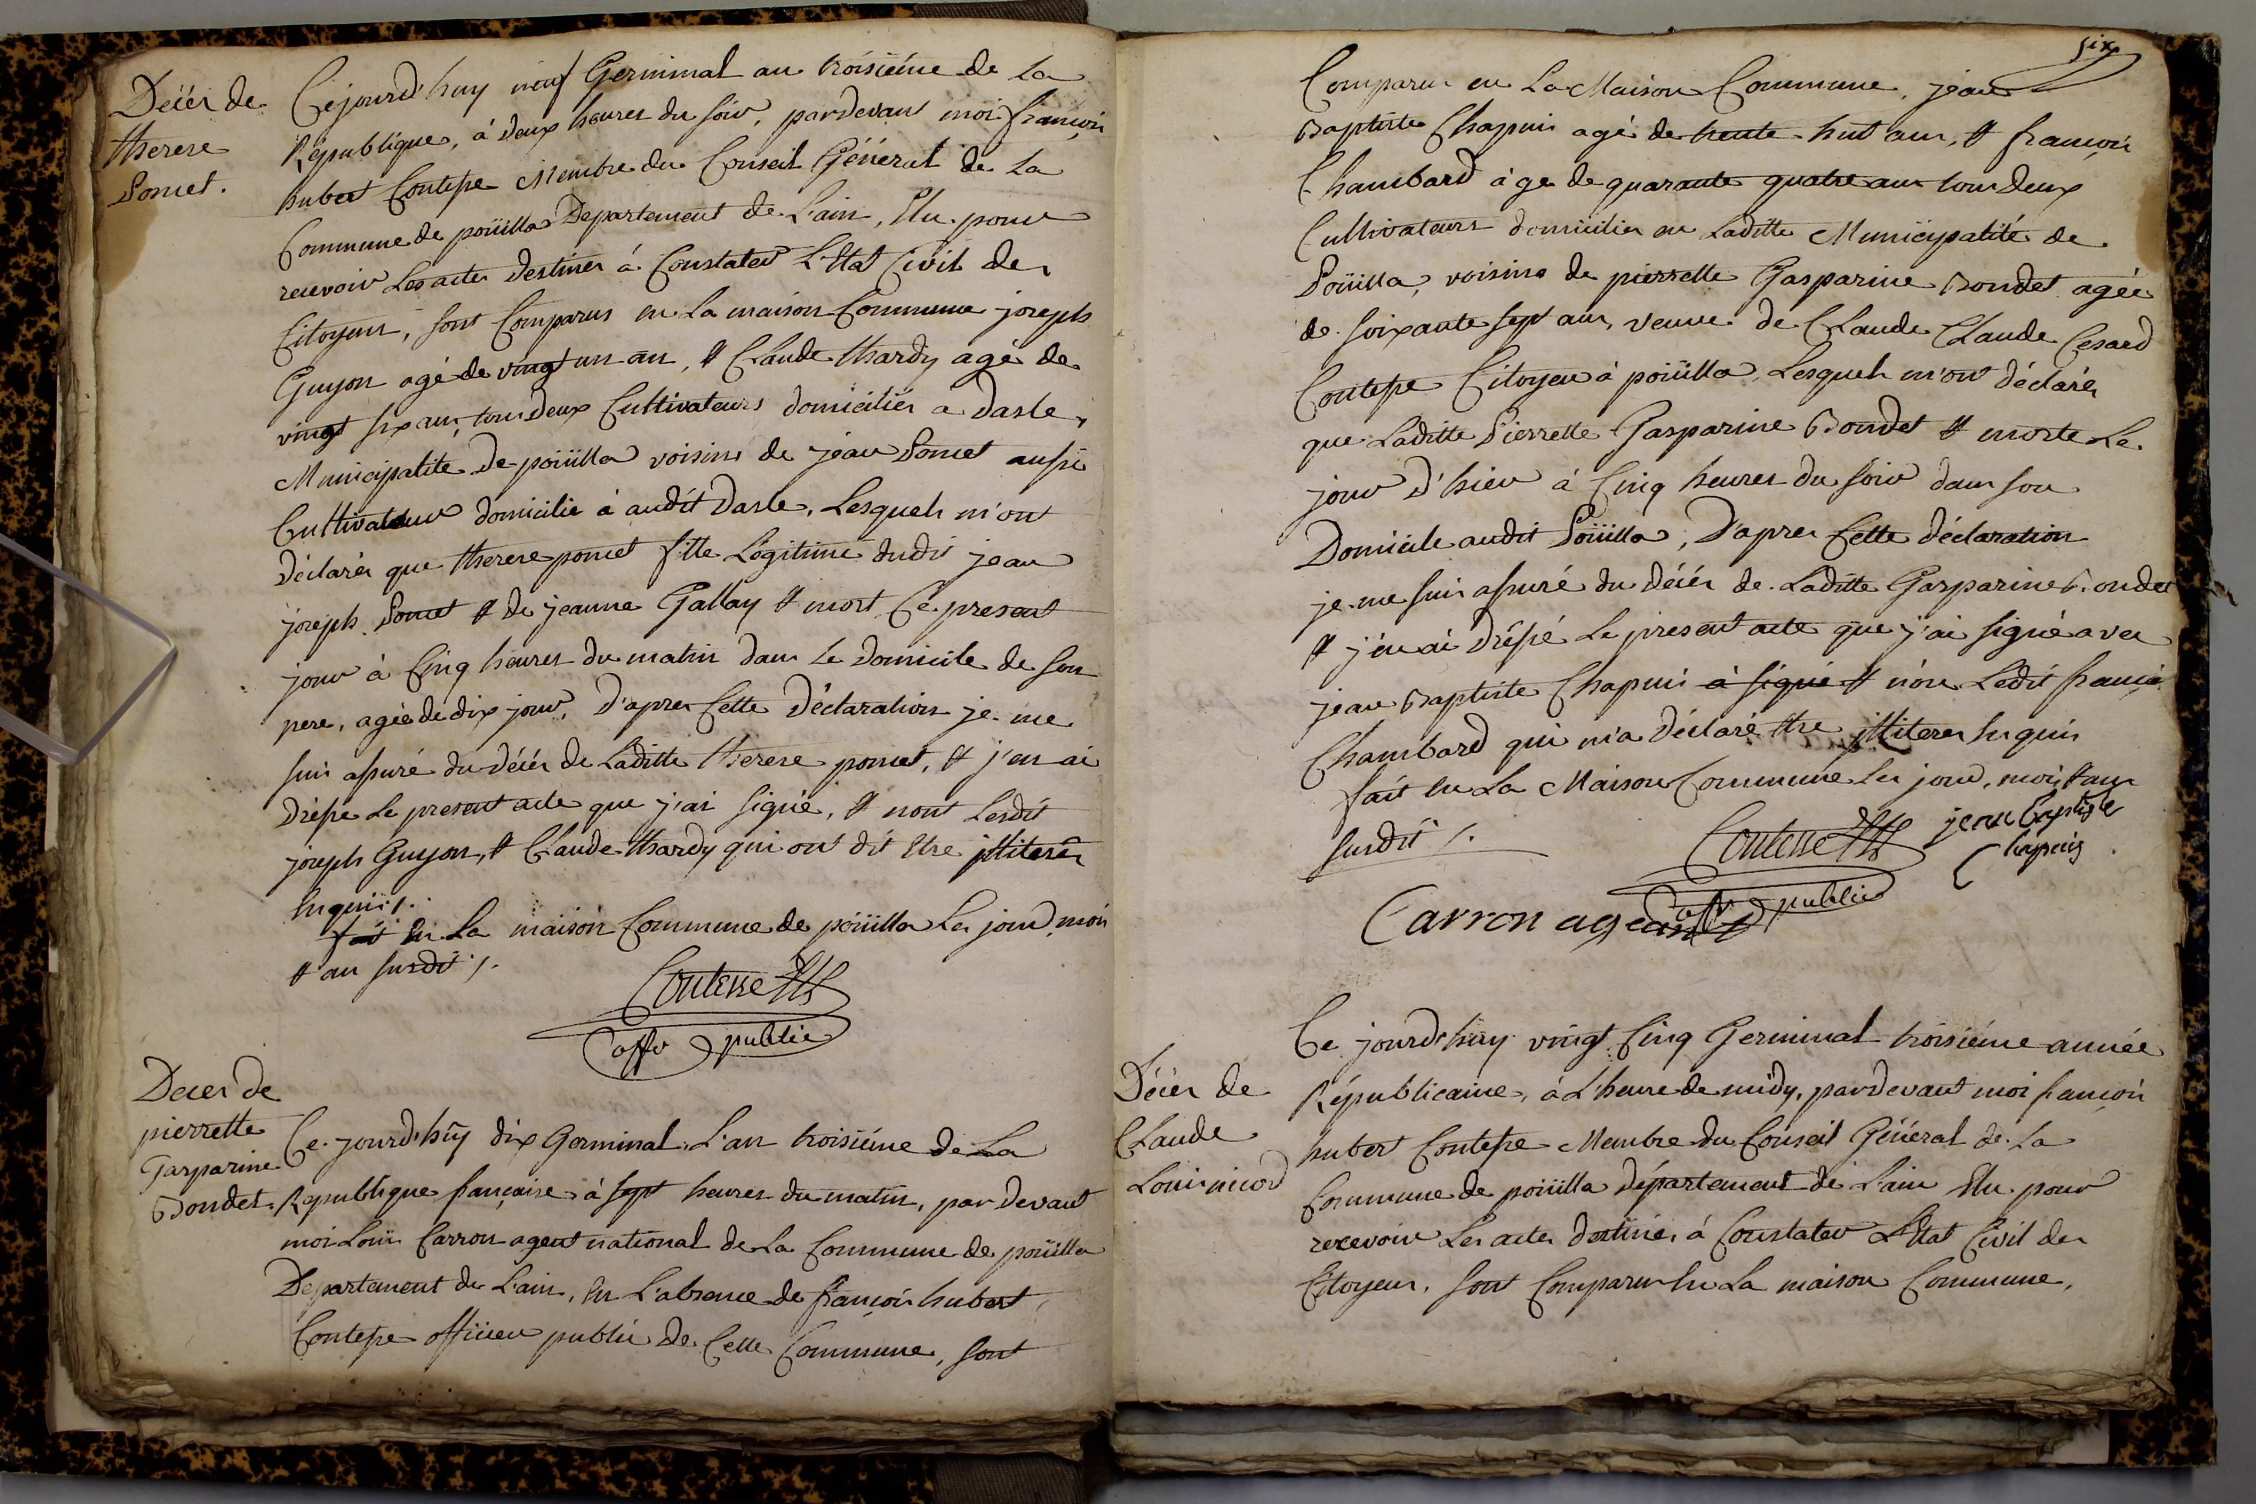 Décés de
therese
Poncet.
Cejourd'huy neuf Germinal an troisiéme de La
République, à deux heures du soir, pardevant moi françois
hubert Contesse Membre du Conseil Géneral de La
Commune de poüilla Departement de L'ain, Elu pour
recevoir Les actes Destinés à Constater L'Etat Civil des
Citoyens, sont Comparus en La maison Commune joseph
Guyon agé de vingt un an, et Claude thardy agé de
vingt six ans, tous deux Cultivateurs domiciliés a dasle,
Municipalité de poüilla voisins de jean Poncet aussi
Cultivateur domicilié à audit Dasle, Lesquels m'ont
Déclarés que therese poncet fille Légitime dudit jean
joseph Poncet et de jeanne Gallay et mort Ce present
jour à Cinq heures du matin dans Le Domicile de son
pere, agée de dix jour, D'apres Cette Déclaration je me
suis assuré du décés de Laditte therese poncet, et j'en ai
Dréssé Le present acte que j'ai signé, et nont Lesdit
joseph Guyon, et Claude thardy qui ont dit Etre jlliterés
Enquis ;.
fait En La maison Commune de poüilla Les jour, mois
et an susdit ;.
Contesse
off publie
Deces de
pierrette
Gasparine
Bondet.
Ce jourd'hüy dix Germinal L'an troisiéme de La
Republique française à sept heures du matin, par devant
moi Loüis Carron agent national de La Commune de poüilla
Departement de L'ain, En L'absence de françois hubert,
Contesse officier public de Cette Commune, sont
six
Comparus en La Maison Commune, jean
Baptiste Chapuis agé de trente-huit ans, et françois
Chambard àgé de quarante quatre ans tous deux
Cultivateurs domiciliés en Laditte Municipalité de
Poüilla, voisins de pierrette Gasparine Bondet agée
de soixante sept ans, veuve de Claude Claude Cesard
Contesse Citoyen à poüilla, Lesquels m'ont déclarés
que Laditte Pierrette Gasparine Bondet et morte Le
jour d'hier à Cinq heures du soir dans son
Domicile audit Poüilla, D'apres Cette déclaration
je me suis assuré du décés de Laditte Gasparine Bondet
et j'en ai Dréssé Le present acte que j'ai signé avec
jean Baptiste Chapuis à signé et non Ledit françois
Chambard qui m'a Déclaré Etre jlliterés Enquis
fait En La Maison Commune Les jour, mois et ans
susdit ;.
Contesse
jean baptiste
Chapuis
off publie
Carron agent
Décés de
Claude
Louis nicod
Ce jourd'huy vingt Cinq Germinal troisiéme année
Républicaine, à L'heure de midy, pardevant moi françois
hubert Contesse Membre du Conseil Géneral de La
Commune de poüilla département de L'ain Elu pour
recevoir Les actes destinés à Constater L'Etat Civil des
Citoyens, sont Comparus En La maison Commune,